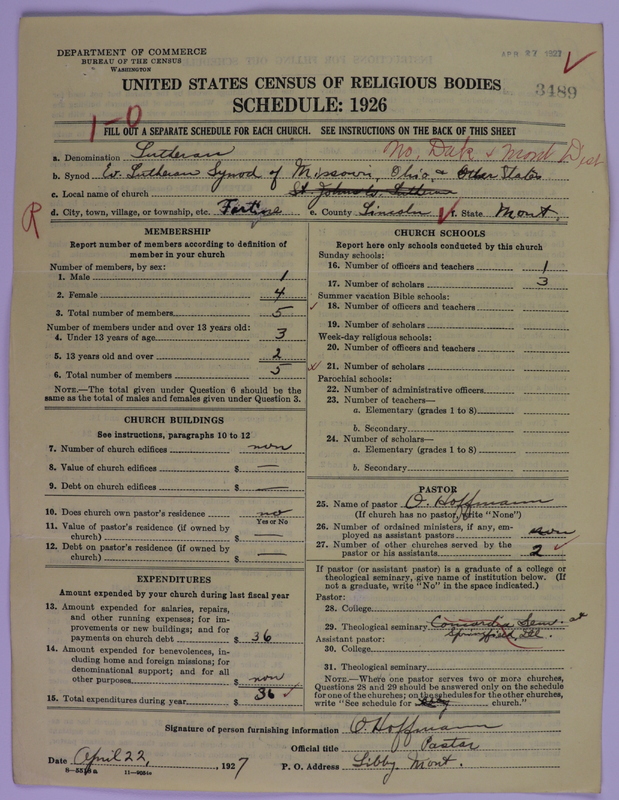 DEPARTMENT OF COMMERCE
BUREAU OF THE CENSUS
WASHINGTON
APR 27 1927
UNITED STATES CENSUS OF RELIGIOUS BODIES
3489
SCHEDULE: 1926
1-0
FILL OUT A SEPARATE SCHEDULE FOR EACH CHURCH. SEE INSTRUCTIONS ON THE BACK OF THIS SHEET
No, Dak & Mont Dist
a. Denomination Lutheran
b. Synod Ev. Lutheran Synod of Missouri, Ohio, & Other States
c. Local name of church St. Johns Ev. Lutheran
R
d. City, town, village, or township, etc. Fortine e. County Lincoln f. State Mont.
MEMBERSHIP
Report number of members according to definition of
member in your church
Number of members, by sex:
1. Male 1
2. Female 4
3. Total number of members 5
Number of members under and over 13 years old:
4. Under 13 years of age 3
5. 13 years old and over 2
6. Total number of members 5
NOTE.—The total given under Question 6 should be the
same as the total of males and females given under Question 3.
CHURCH BUILDINGS
See instructions, paragraphs 10 to 12
7. Number of church edifices non
8. Value of church edifices $ —
9. Debt on church edifices $ —
10. Does church own pastor's residence no
Yes or No
11. Value of pastor's residence (if owned by
church) $ —
12. Debt on pastor's residence (if owned by
church) $ —
EXPENDITURES
Amount expended by your church during last fiscal year
13. Amount expended for salaries, repairs,
and other running expenses; for im-
provements or new buildings; and for
payments on church debt $ 36
14. Amount expended for benevolences, in-
cluding home and foreign missions; for
denominational support; and for all
other purposes $ non
15. Total expenditures during year $ 36
CHURCH SCHOOLS
Report here only schools conducted by this church
Sunday schools:
16. Number of officers and teachers 1
17. Number of scholars 3
Summer vacation Bible schools:
18. Number of officers and teachers
19. Number of scholars
Week-day religious schools:
20. Number of officers and teachers
21. Number of scholars
Parochial schools:
22. Number of administrative officers
23. Number of teachers—
a. Elementary (grades 1 to 8)
b. Secondary
24. Number of scholars—
a. Elementary (grades 1 to 8)
b. Secondary
PASTOR
25. Name of pastor O. Hoffmann
(If church has no pastor, write "None")
26. Number of ordained ministers, if any, em-
ployed as assistant pastors non
27. Number of other churches served by the
pastor or his assistants 2
If pastor (or assistant pastor) is a graduate of a college or
theological seminary, give name of institution below. (If
not a graduate, write "No" in the space indicated.)
Pastor:
28. College
29. Theological seminary Concordia Sem. at
Assistant pastor: Springfield Ill.
30. College
31. Theological seminary
NOTE.—Where one pastor serves two or more churches,
Questions 28 and 29 should be answered only on the schedule
for one of the churches; on the schedules for the other churches,
write "See schedule for church."
Signature of person furnishing information O. Hoffmann
Official title Pastor
Date April 22, , 1927 P. O. Address Libby Mont.
8-5518a 11-9054a